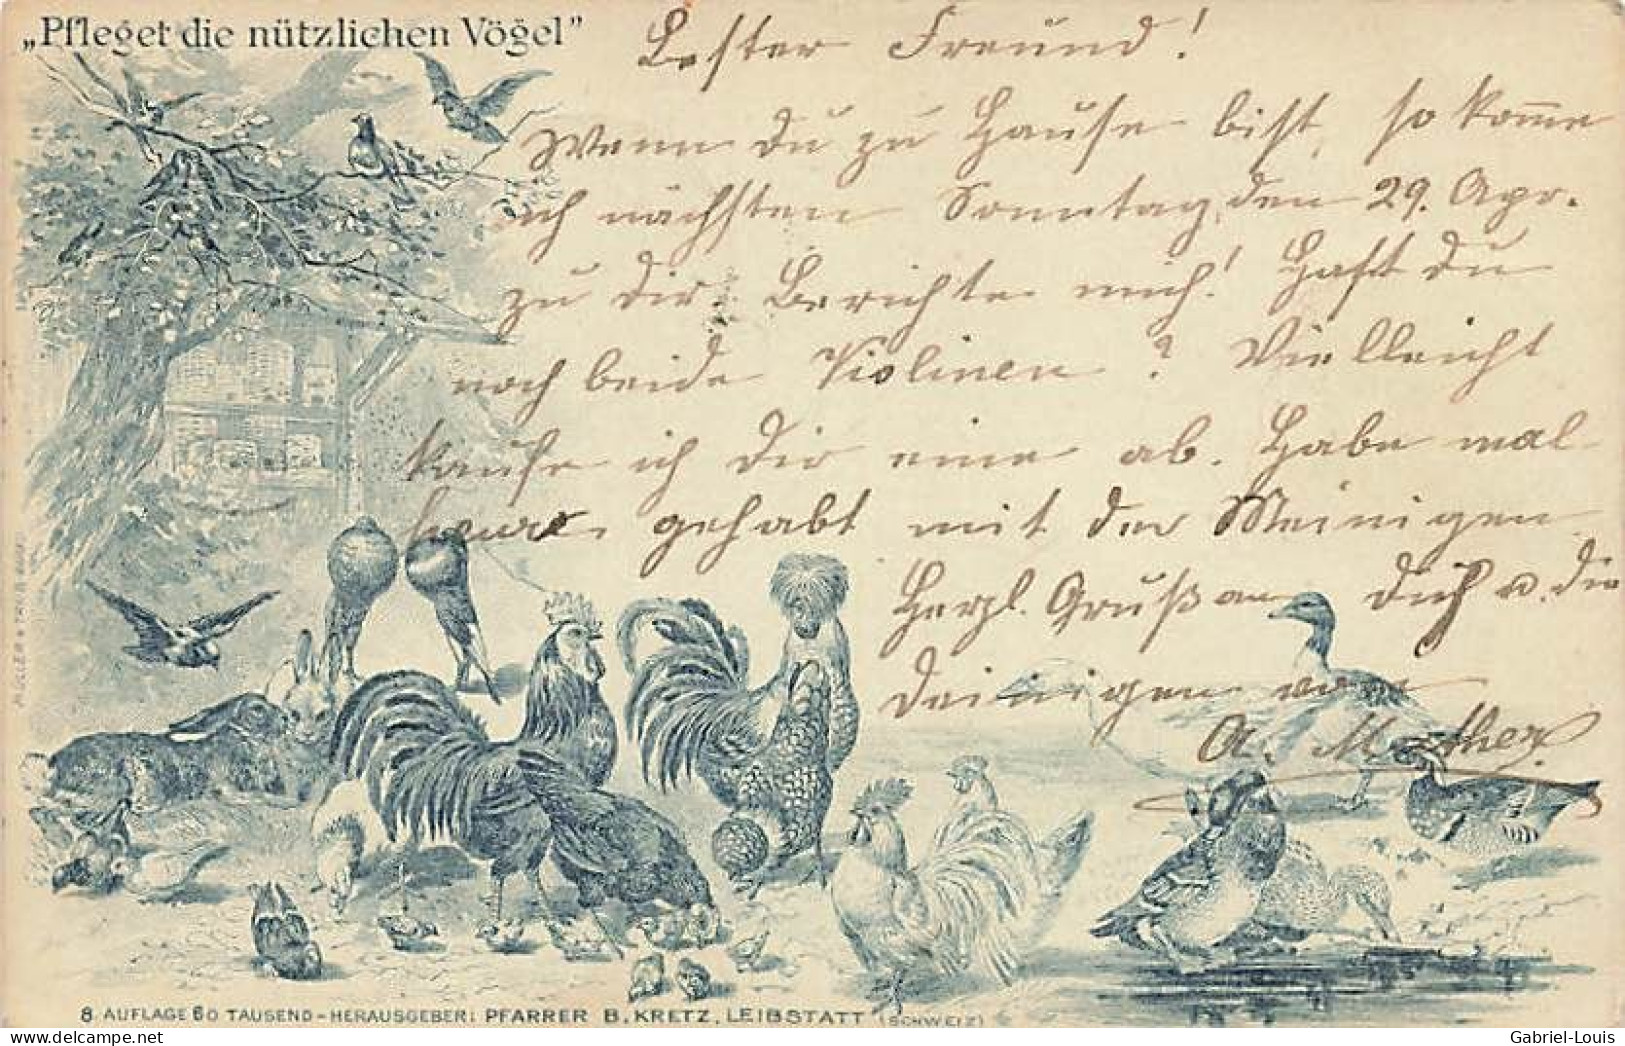 „Pfleget die nützlichen Vögel”
Bester Freund!
Wenn Du zu Hause bist, so kom̅e
ich nächsten Sonntag, den 29. Apr.
zu Dir. Berichte mich! Hast Du
noch beide Violinen? Vielleicht
kaufe ich Dir eine ab. Habe mal
gehabt mit der Meinigen.
Herzl. Gruß an Dich u. die
Deinigen von
A.
8 AUFLAGE 60 TAUSEND - HERAUSGEBER: PFARRER B. KRETZ, LEIBSTATT (SCHWEIZ)
Gabriel-Louis